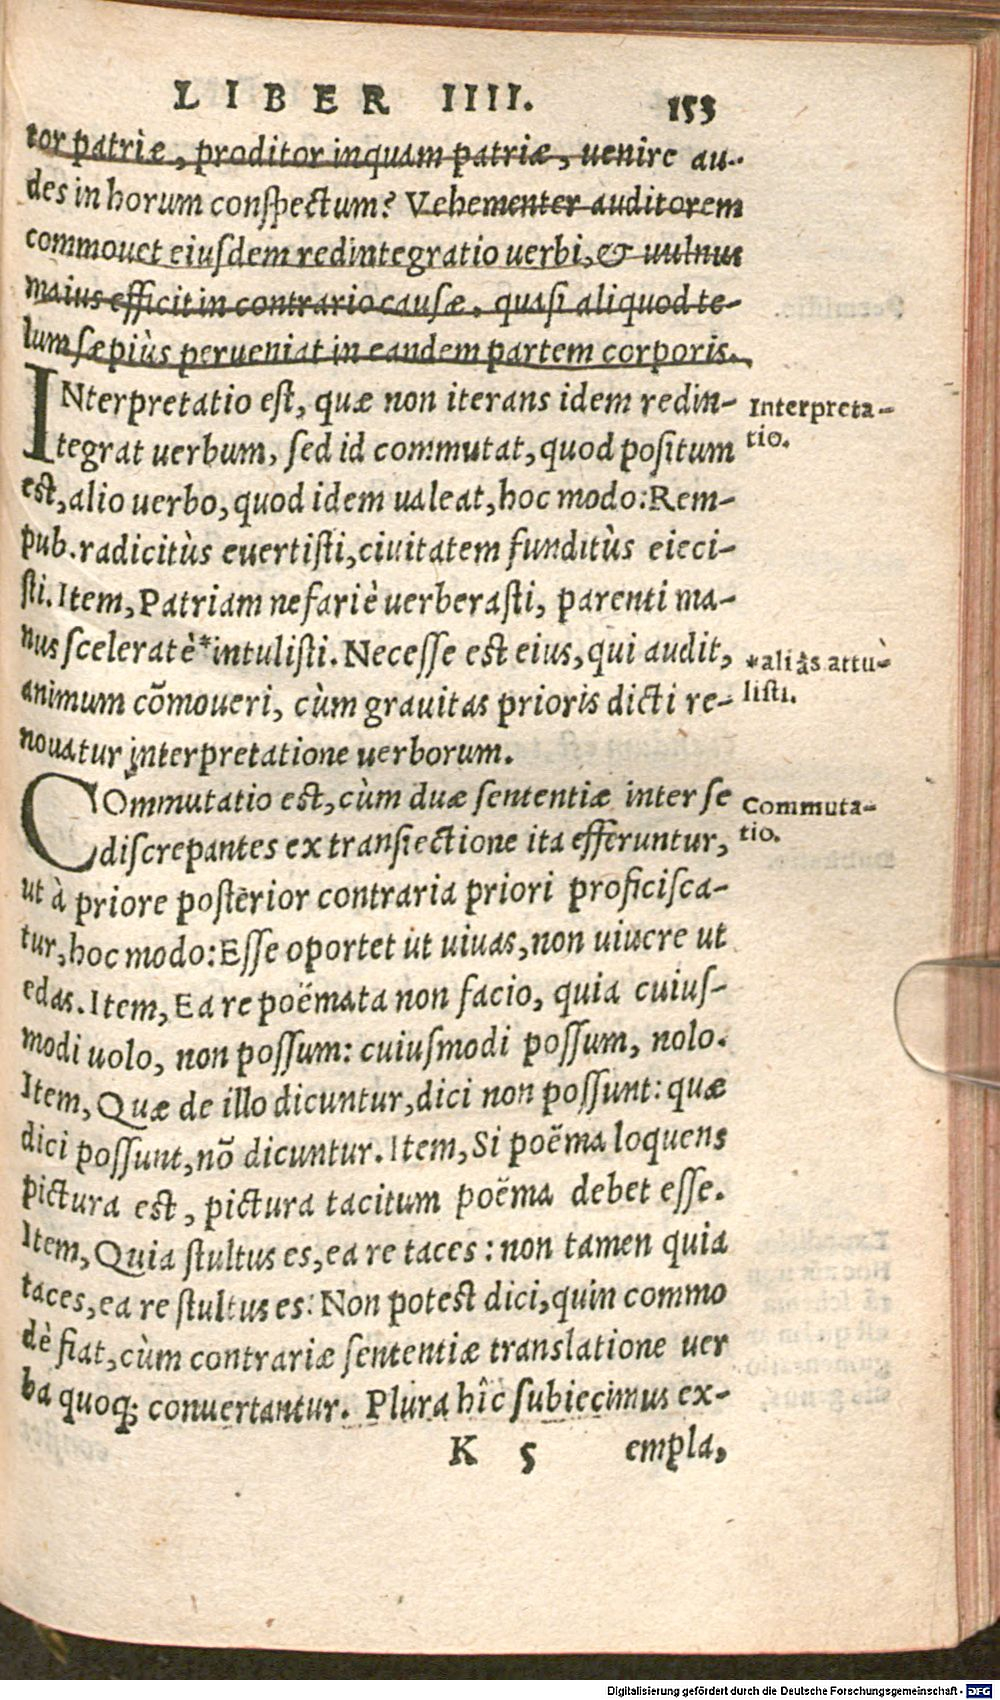 LIBER IIII. 153
tor patriæ, proditor inquam patriæ, uenire au-
des in horum conspectum? Vehementer auditorem
commouet eiusdem redintegratio uerbi, & uulnus
maius efficit in contrario causæ, quasi aliquod te-
lum sæpiùs perueniat in eandem partem corporis.
INterpretatio est, quæ non iterans idem redin-
Interpreta-
tegrat uerbum, sed id commutat, quod positum
tio.
est, alio uerbo, quod idem ualeat, hoc modo: Rem-
pub. radicitùs euertisti, ciuitatem funditùs eieci-
sti. Item, Patriam nefariè uerberasti, parenti ma-
nus sceleratè *intulisti. Necesse est eius, qui audit,
*aliâs attu-
animum cõmoueri, cùm grauitas prioris dicti re-
listi.
nouatur interpretatione uerborum.
COmmutatio est, cùm duæ sententiæ inter se
Commuta-
discrepantes ex transiectione ita efferuntur,
tio.
ut à priore posterior contraria priori proficisca-
tur, hoc modo: Esse oportet ut uiuas, non uiuere ut
edas. Item, Ea re poëmata non facio, quia cuius-
modi uolo, non possum: cuiusmodi possum, nolo.
Item, Quæ de illo dicuntur, dici non possunt: quæ
dici possunt, nõ dicuntur. Item, Si poëma loquens
pictura est, pictura tacitum poëma debet esse.
Item, Quia stultus es, ea re taces: non tamen quia
taces, ea re stultus es: Non potest dici, quin commo
dè fiat, cùm contrariæ sententiæ translatione uer
ba quoq; conuertantur. Plura hîc subiecimus ex-
K 5 empla,
Digitalisierung gefördert durch die Deutsche Forschungsgemeinschaft - DFG